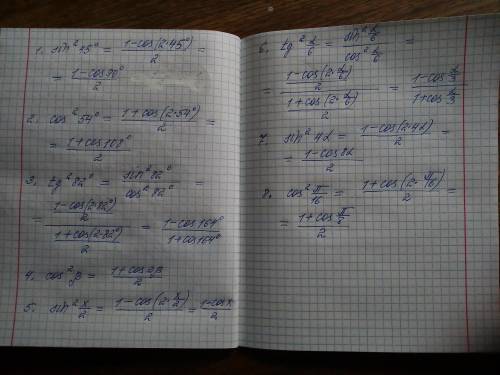 1. sin² 45° = (1-cos(2·45°))/2 =
= (1-cos90°)/2
2. cos² 54° = (1+cos(2·54°))/2 =
= (1+cos108°)/2
3. tg² 82° = (sin² 82°)/(cos² 82°) =
= ((1-cos(2·82°))/2)/((1+cos(2·82°))/2) = (1-cos164°)/(1+cos164°)
4. cos² β = (1+cos2β)/2
5. sin² x/2 = (1-cos(2·x/2))/2 = (1-cosx)/2
6. tg² α/6 = (sin² α/6)/(cos² α/6) =
= ((1-cos(2·α/6))/2)/((1+cos(2·α/6))/2) = (1-cos α/3)/(1+cos α/3)
7. sin² 4α = (1-cos(2·4α))/2 =
= (1-cos8α)/2
8. cos² π/16 = (1+cos(2·π/16))/2 =
= (1+cos π/8)/2